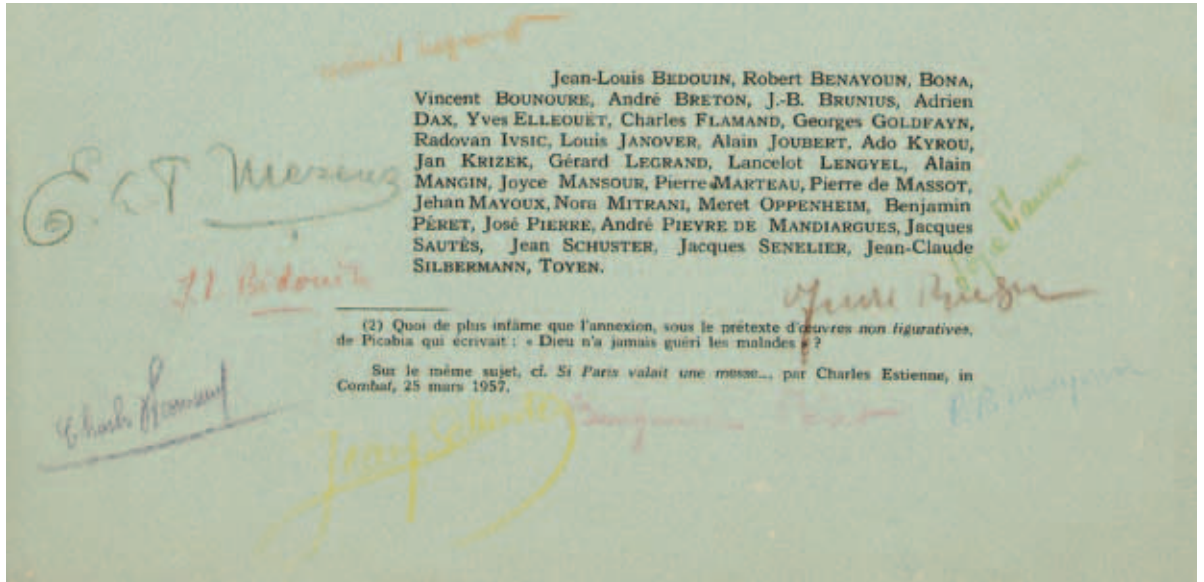 Jean-Louis BEDOUIN, Robert BENAYOUN, BONA,
Vincent BOUNOURE, André BRETON, J.-B. BRUNIUS, Adrien
DAX, Yves ELLEOUËT, Charles FLAMAND, Georges GOLDFAYN,
Radovan IVSIC, Louis JANOVER, Alain JOUBERT, Ado KYROU,
Jan KRIZEK, Gérard LEGRAND, Lancelot LENGYEL, Alain
MANGIN, Joyce MANSOUR, Pierre MARTEAU, Pierre de MASSOT,
Jehan MAYOUX, Nora MITRANI, Meret OPPENHEIM, Benjamin
PÉRET, José PIERRE, André PIEYRE DE MANDIARGUES, Jacques
SAUTÈS, Jean SCHUSTER, Jacques SENELIER, Jean-Claude
SILBERMANN, TOYEN.
E.L.T Mesens
J.L. Bédouin
(2) Quoi de plus infâme que l'annexion, sous le prétexte d'œuvres non figuratives,
de Picabia qui écrivait : « Dieu n'a jamais guéri les malades » ?
Sur le même sujet, cf. Si Paris valait une messe..., par Charles Estienne, in
Combat, 25 mars 1957.
Charles Flamand
Jean Schuster
Benjamin Péret
R. Benayoun